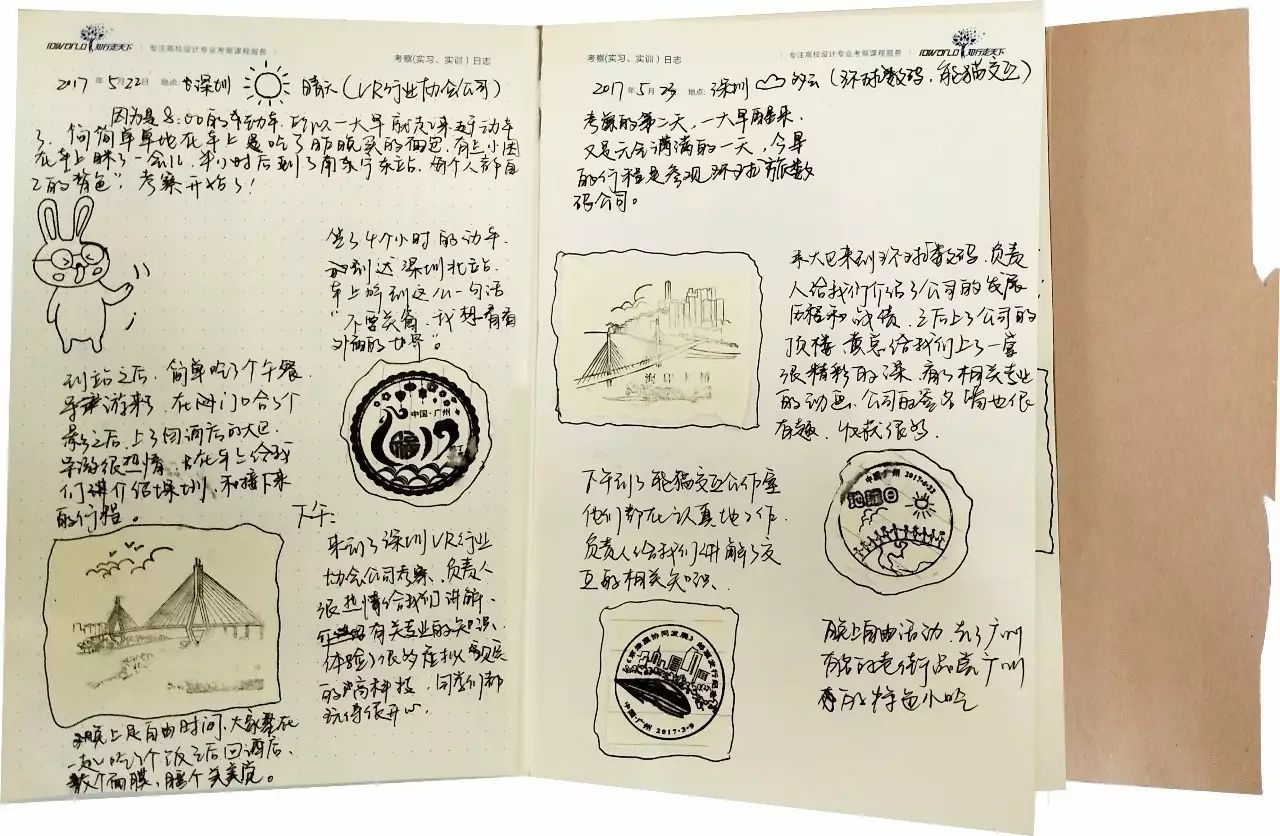 IDWORLD 知行走天下 | 专注高校设计专业考察课程服务 |
考察(实习、实训)日志
2017 年 5 月 22 日 地点: 深圳 晴天 (VR行业协会公司)
因为是 8:00 的动车. 所以一大早就起来 动车
了. 简简单单地在车上 吃了昨晚买的面包. 有些小困
在车上眯了一会儿. 半小时后到了南 站. 每个人都自
的背包”. 考察开始了!
坐了4个小时的动车.
到达深圳北站.
车上听到这么一句话
“不要关窗. 我想看看
外面的世界”。
到站之后. 简单吃了个午餐
导游来了. 在 门口合了个
影之后. 上了回酒店的大巴.
导游很热情. 在车上给我
们讲介绍深圳. 和接下来
的行程。
中国·广州
福
下午:
来到了深圳 VR 行业
协会公司考察. 负责人
很热情给我们讲解.
有关专业的知识.
体验了很多虚拟现实
的“高科技. 同学们都
玩得很开心.
晚上是自由时间. 大家聚在
一起吃了个饭之后回酒店.
敷个面膜. 睡个美美觉。
考察(实习、实训)日志
| 专注高校设计专业考察课程服务 | IDWORLD 知行走天下
2017 年 5 月 23 地点: 深圳 多云 (环球数码. 熊猫交互)
考察的第二天. 一大早醒来.
又是元气满满的一天. 今早
的行程是参观环球 数
码公司。
大巴来到环球数码. 负责
人给我们介绍了公司的发展
历程和战绩. 之后上了公司的
顶楼. 黄总给我们上了一堂
很精彩的课. 看了相关专业
的动画. 公司的签名墙也很
有趣. 收获很多.
海印大桥
下午到了熊猫交互工作室
他们都在认真地工作.
负责人给我们讲解了交
互的相关知识.
中国广州 2017·4·22
地球日
协同发展》
中国·广州 2017·3·9
晚上自由活动. 去了广州
有名的老街品尝广州
的特色小吃